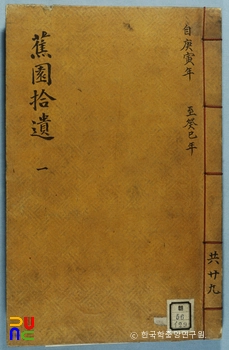 自庚寅年
至癸巳年
蕉園拾遺
一
共廿九
PU
© 한국학중앙연구원